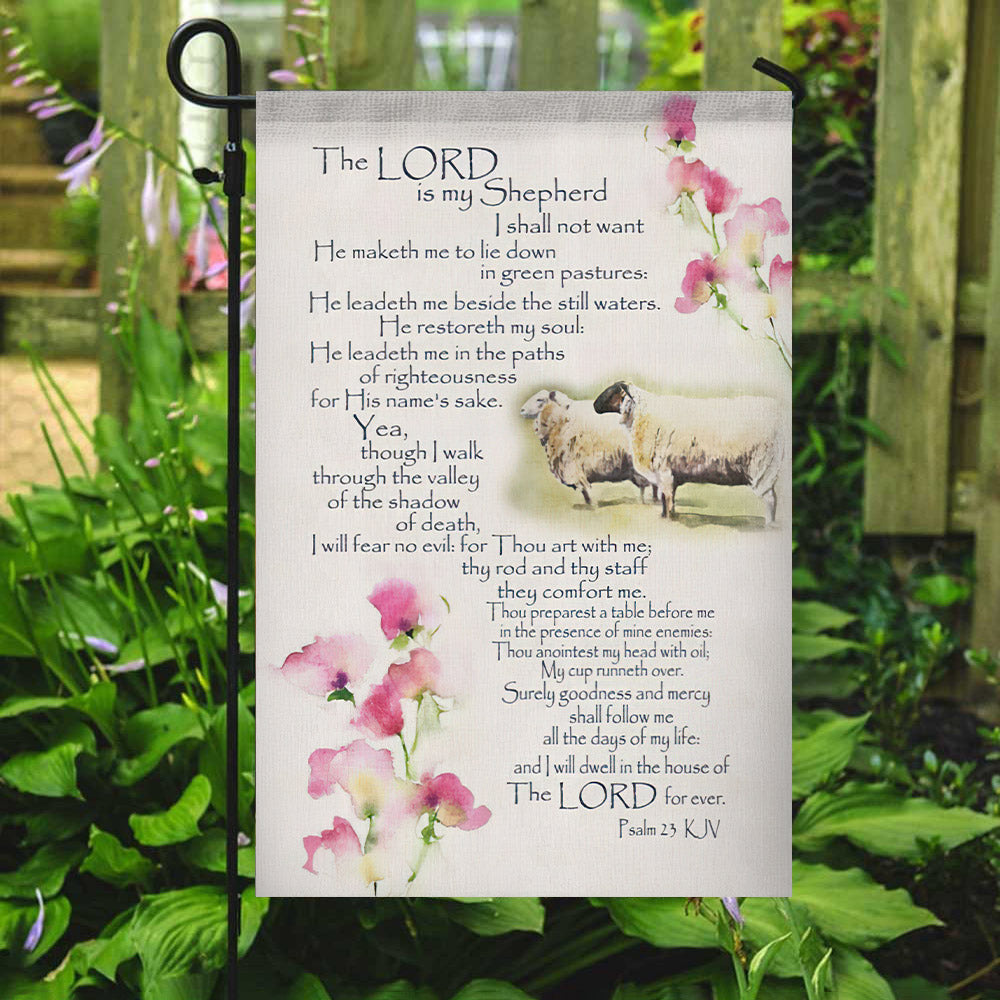 The LORD
is my Shepherd
I shall not want
He maketh me to lie down
in green pastures:
He leadeth me beside the still waters.
He restoreth my soul:
He leadeth me in the paths
of righteousness
for His name's sake.
Yea,
though I walk
through the valley
of the shadow
of death,
I will fear no evil: for Thou art with me;
thy rod and thy staff
they comfort me.
Thou preparest a table before me
in the presence of mine enemies:
Thou anointest my head with oil;
My cup runneth over.
Surely goodness and mercy
shall follow me
all the days of my life:
and I will dwell in the house of
The LORD for ever.
Psalm 23 KJV